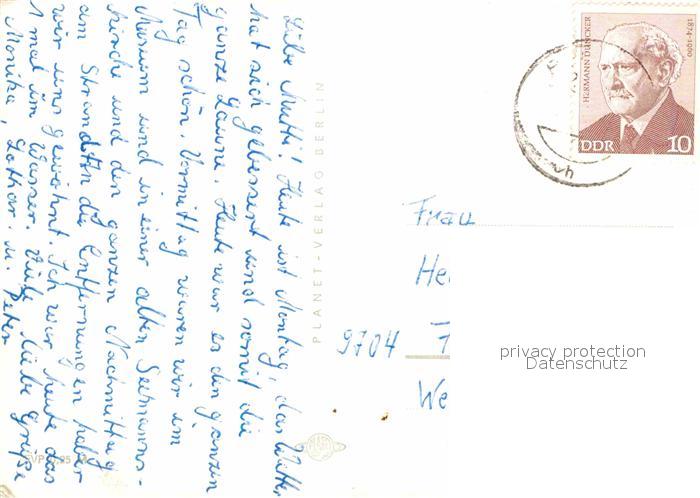 Liebe Mutti! Heute ist Montag, das Wetter
hat sich gebessert und somit die
ganze Laune. Heute war es den ganzen
Tag schön. Vormittag waren wir im
Museum und in einer alten Seemanns-
kirche und den ganzen Nachmittag
am Strand. An die Entfernungen haben
wir uns gewöhnt. Ich war heute das
1 mal im Wasser. Viele liebe Grüße
Monika, Lothar u. Peter
PLANET-VERLAG BERLIN
HERMANN DUNCKER
1874-1960
DDR 10
Frau
He
9704
We
privacy protection
Datenschutz